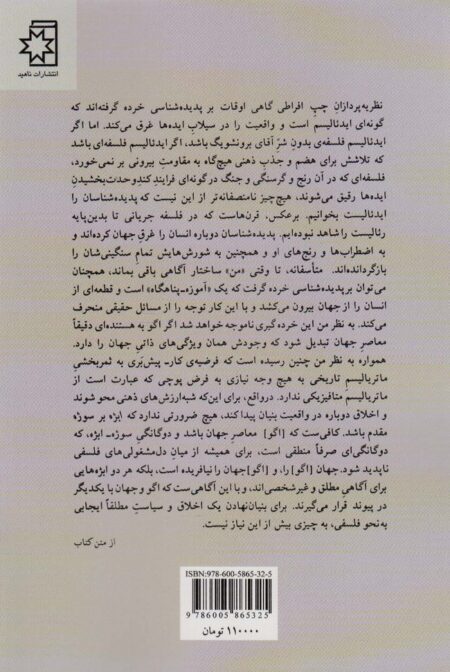 انتشارات ناهید
نظریه‌پردازان چپِ افراطی گاهی اوقات بر پدیده‌شناسی خرده گرفته‌اند که
گونه‌ای ایدئالیسم است و واقعیت را در سیلابِ ایده‌ها غرق می‌کند. اما اگر
ایدئالیسم فلسفه‌ی بدونِ شرّ آقای برونشویگ باشد، اگر ایدئالیسم فلسفه‌ای باشد
که تلاش برای هضم و جذبِ ذهنی هیچ‌گاه به مقاومتِ بیرونی بر نمی‌خورد،
فلسفه‌ای که در آن رنج و گرسنگی و جنگ در گونه‌ای فرایندِ کندِ وحدت‌بخشیدنِ
ایده‌ها رقیق می‌شوند، هیچ‌چیز نامنصفانه‌تر از این نیست که پدیده‌شناسان را
ایدئالیست بخوانیم. برعکس، قرن‌هاست که در فلسفه جریانی تا بدین‌پایه
رئالیست را شاهد نبوده‌ایم. پدیده‌شناسان دوباره انسان را غرقِ جهان کرده‌اند و
به اضطراب‌ها و رنج‌های او و همچنین به شورش‌هایش تمامِ سنگینی‌شان را
بازگردانده‌اند. متأسفانه، تا وقتی «من» ساختارِ آگاهی باقی بماند، همچنان
می‌توان بر پدیده‌شناسی خرده گرفت که یک «آموزه‌ـ‌پناهگاه» است و قطعه‌ای از
انسان را از جهان بیرون می‌کشد و با این کار توجه را از مسائل حقیقی منحرف
می‌کند. به نظر من این خرده‌گیری ناموجه خواهد شد اگر اگو به هستنده‌ای دقیقاً
معاصرِ جهان تبدیل شود که وجودش همان ویژگی‌های ذاتیِ جهان را دارد.
همواره به نظر من چنین رسیده است که فرضیه‌ی کارـ پیش‌بَری به ثمربخشیِ
ماتریالیسمِ تاریخی به هیچ وجه نیازی به فرضِ پوچی که عبارت است از
ماتریالیسمِ متافیزیکی ندارد. درواقع، برای این‌که شبه‌ارزش‌های ذهنی محو شوند
و اخلاق دوباره در واقعیت بنیان پیدا کند، هیچ ضرورتی ندارد که ابژه بر سوژه
مقدم باشد. کافی‌ست که [اگو] معاصرِ جهان باشد و دوگانگیِ سوژه‌ـ ابژه، که
دوگانگی‌ای صرفاً منطقی است، برای همیشه از میانِ دل‌مشغولی‌های فلسفی
ناپدید شود. جهان [اگو] را، و [اگو] جهان را نیافریده است، بلکه هر دو ابژه‌هایی
برای آگاهیِ مطلق و غیرشخصی‌اند، و با این آگاهی‌ست که اگو و جهان با یکدیگر
در پیوند قرار می‌گیرند. برای بنیان‌نهادن یک اخلاق و سیاستِ مطلقاً ایجابی
به‌نحوِ فلسفی، به چیزی بیش از این نیاز نیست.
از متن کتاب
ISBN:978-600-5865-32-5
9 786005 865325
۱۱۰۰۰۰ تومان